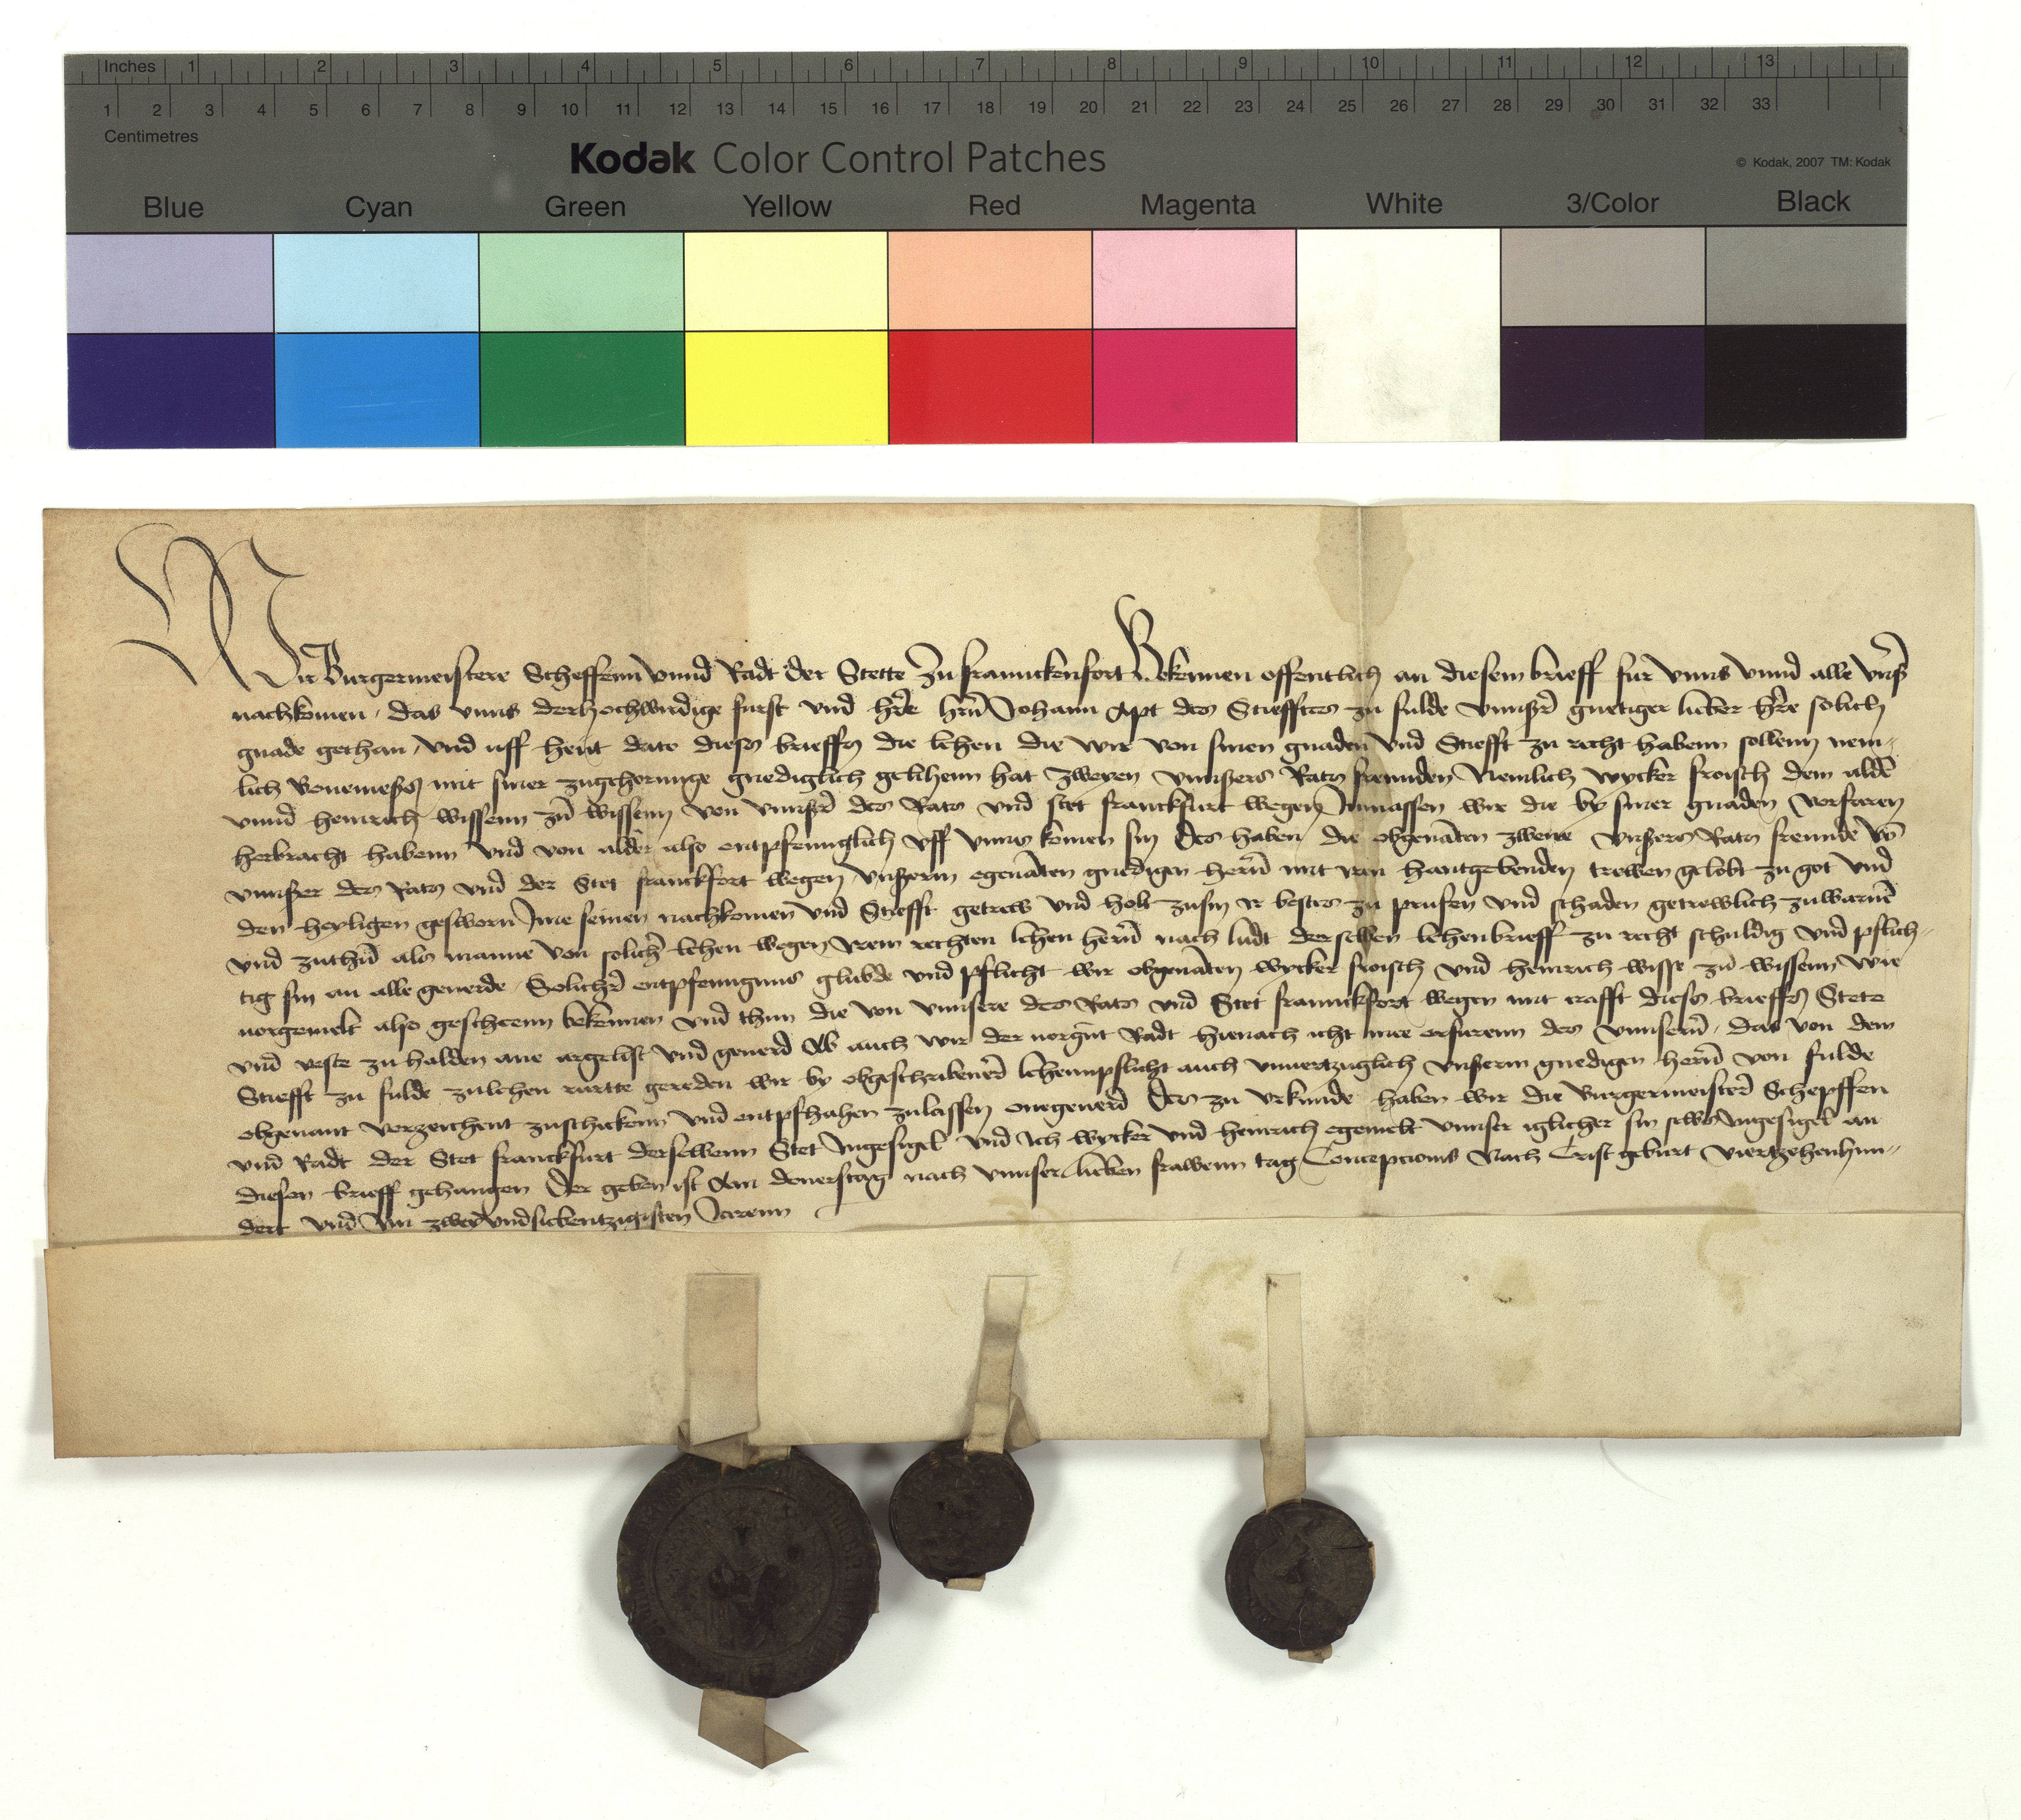 Inches 1 2 3 4 5 6 7 8 9 10 11 12 13
1 2 3 4 5 6 7 8 9 10 11 12 13 14 15 16 17 18 19 20 21 22 23 24 25 26 27 28 29 30 31 32 33
Centimetres
Kodak Color Control Patches
© Kodak, 2007 TM: Kodak
Blue Cyan Green Yellow Red Magenta White 3/Color Black
Wir Burgermeistere Scheffenn vnnd Radt der Stette zu frannckenfort Bekennen offentlich an diesem brieff fur vnns vnnd alle vnß
nachkomen, das vnns der hochwirdige furst vnd here hern Johann Apt des Stiefftes zu fulde vnnßer gnetiger lieber here solich
gnade gethan, vnd uff heut dato dieses brieffes die lehen die wir von sinen gnaden vnd Stiefft zu recht habenn sollenn nem-
lich Bonemeses mit siner zugehorunge gnediglich gelihenn hat zweyen vnnßers Rats freunden Nemlich wycker froisch dem alden
vnnd heinrich wissenn zu wissenn von vnnßer des Rats vnd stet franckfurt wegen Inmassen wir die by siner gnaden vorfaren
herbracht habenn vnd von alder also entpfenniglich vff vnns komen sin Des haben die obgenanten zwene vnßers Rats freunde von
vnnßer des Rats vnd der Stet franckfort wegen vnßerm egenanten gnedigen hern mit iren hantgebenden trewen gelobt zu got vnd
den heyligen gesworn Ime seinen nachkomen vnd Stiefft getrew vnd holt zusin ir bestes zu prufen vnd schaden getrewlich zuwarnen
vnd zuthun als manne von solicher lehen wegen irem rechten lehen hern nach ludt derselben lehenbrieff zu recht schuldig vnd pflich-
tig sin an alle geuerde. Solicher entpfengnus glubde vnd pflicht wir obgenanten wycker froisch vnd heinrich wisse zu wissenn wie
uorgemelt also gescheenn bekennen vnd thun die von vnnsere des Rats vnd Stet frannckfort wegen mit crafft dieses brieffes Stete
vnd veste zu halden ane argelist vnd geuerd Ob auch wir der uorgnt Radt hienach icht mee erfurenn des vnnsern, das von dem
Stiefft zu fulde zulehen rurtte gereden wir by obgeschribener lehennpflicht auch vnuertzuglich vnßerm gnedigen hern von fulde
obgenant verzeichent zuschickenn vnd entpfhahen zulassen onegeuerd Des zu vrkunde haben wir die Burgermeister Schepffen
vnd Radt der Stet franckfurt derselbenn Stet Ingesigel vnd Ich wycker vnd heinrich egemelt vnnser iglicher sin Ingesigel an
diesen brieff gehangen Der geben ist Am donerstag nach vnnser lieben frawenn tag Concepcionis Nach Crist geburt viertzehenhun-
dert vnd Im zweyvndsiebentzigisten Jarenn